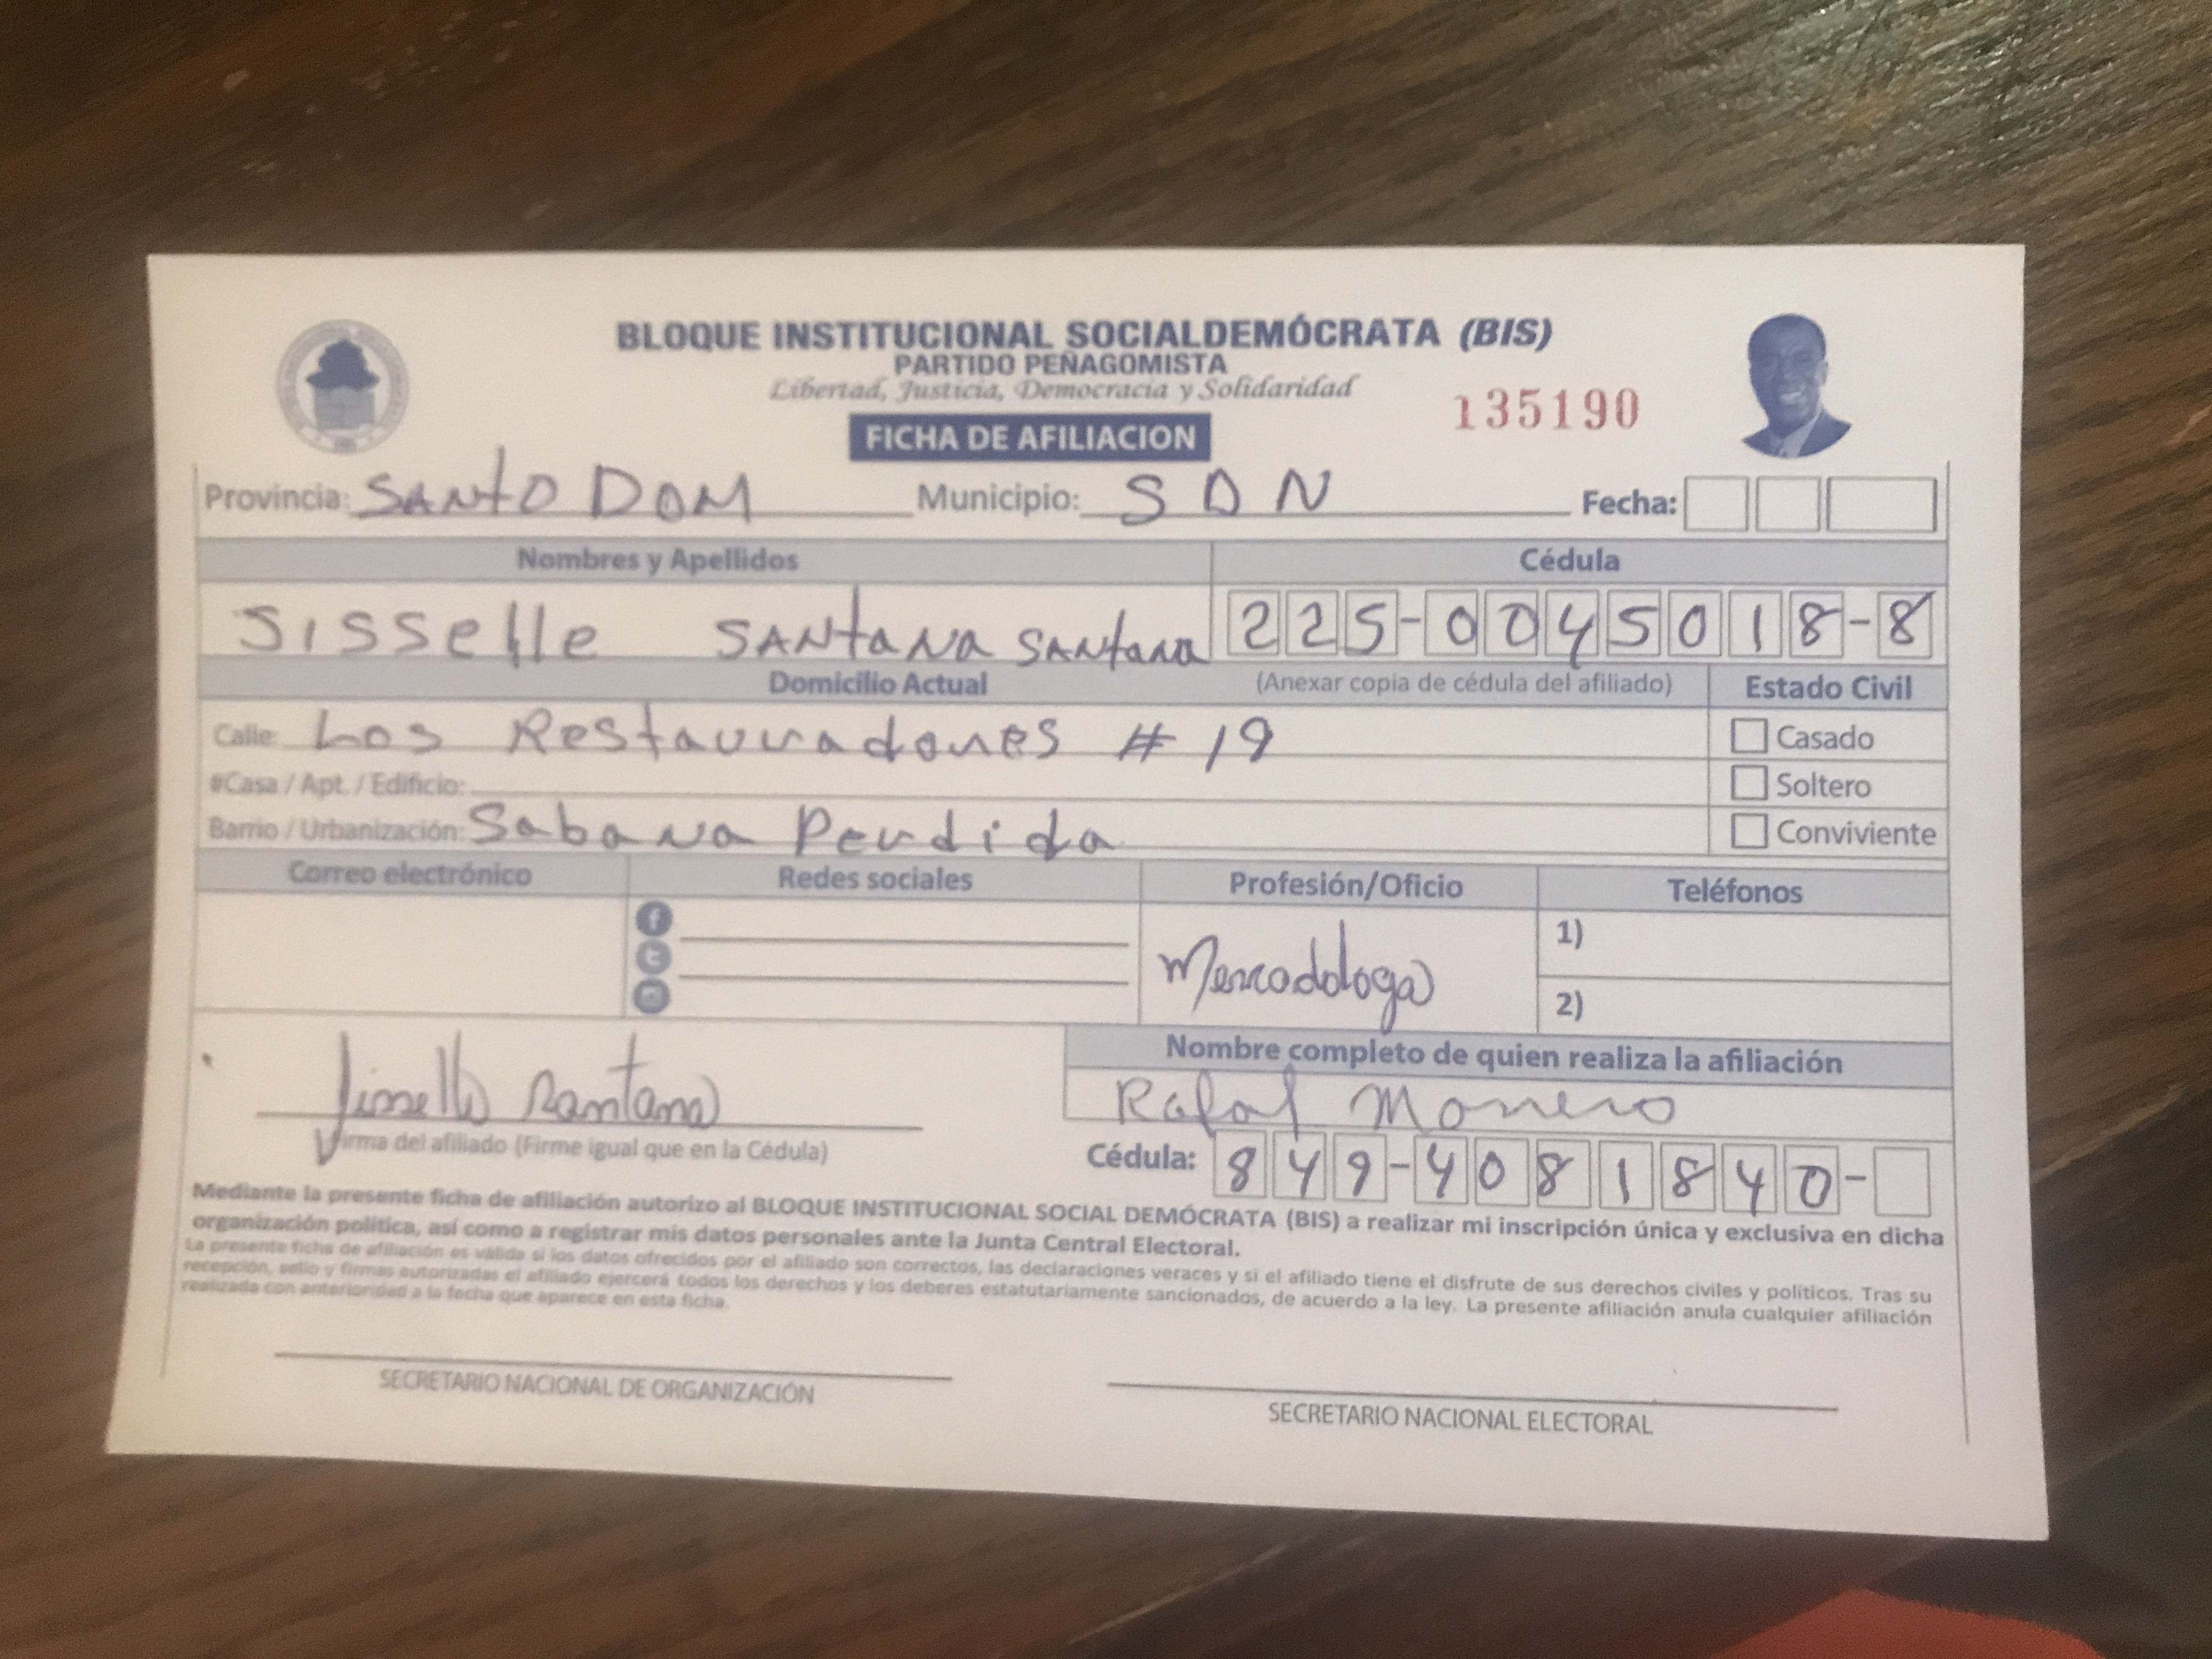 BLOQUE INSTITUCIONAL SOCIALDEMÓCRATA (BIS)
PARTIDO PEÑAGOMISTA
Libertad, Justicia, Democracia y Solidaridad
135190
FICHA DE AFILIACION
Provincia: SANTO DOM Municipio: SDN Fecha:
Nombres y Apellidos Cédula
Sisselle SANtANA SANtana 225-0045018-8
Domicilio Actual (Anexar copia de cédula del afiliado) Estado Civil
Calle: Los Restauradores # 19 Casado
#Casa / Apt. / Edificio: Soltero
Barrio / Urbanización: Sabana Perdida Conviviente
Correo electrónico Redes sociales Profesión/Oficio Teléfonos
Mercadologa 1)
2)
Nombre completo de quien realiza la afiliación
Santana
Firma del afiliado (Firme igual que en la Cédula)
Cédula: 849-4081840-
Mediante la presente ficha de afiliación autorizo al BLOQUE INSTITUCIONAL SOCIAL DEMÓCRATA (BIS) a realizar mi inscripción única y exclusiva en dicha
organización política, así como a registrar mis datos personales ante la Junta Central Electoral.
La presente ficha de afiliación es válida si los datos ofrecidos por el afiliado son correctos, las declaraciones veraces y si el afiliado tiene el disfrute de sus derechos civiles y políticos. Tras su
recepción, sello y firmas autorizadas el afiliado ejercerá todos los derechos y los deberes estatutariamente sancionados, de acuerdo a la ley. La presente afiliación anula cualquier afiliación
realizada con anterioridad a la fecha que aparece en esta ficha.
SECRETARIO NACIONAL DE ORGANIZACIÓN
SECRETARIO NACIONAL ELECTORAL